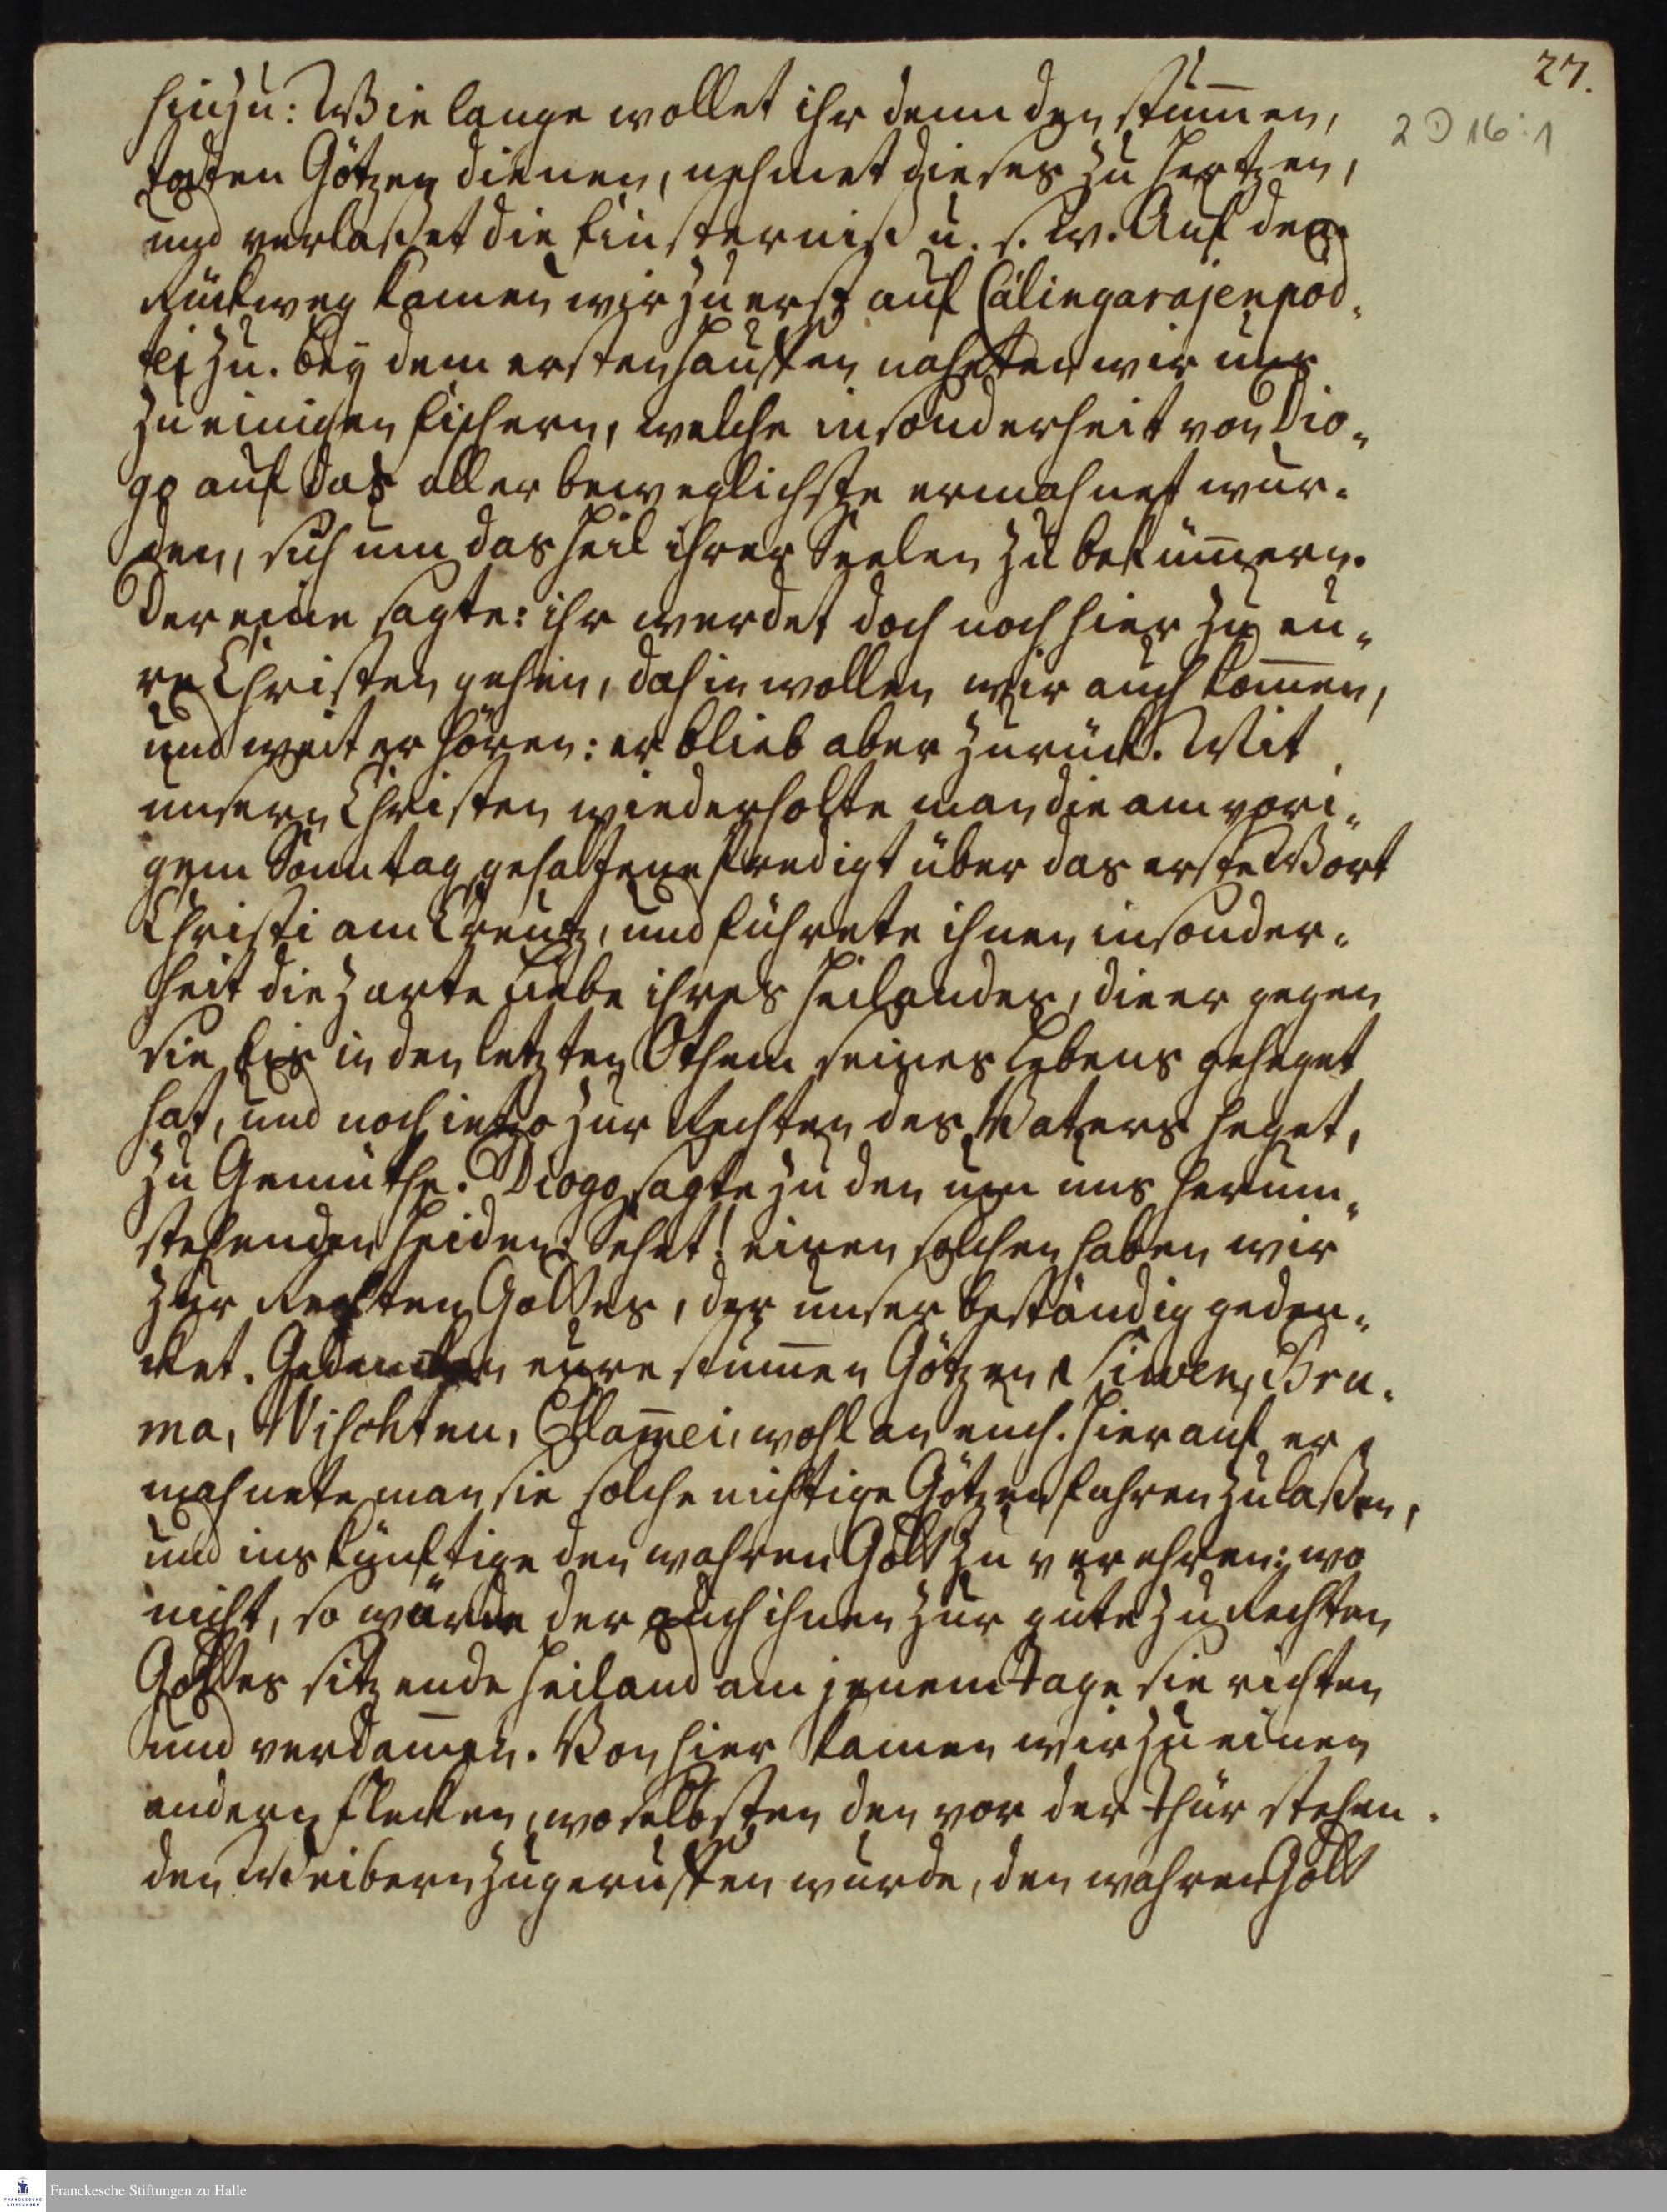 27.
2 D 16:1
hinzu: Wie lange wollet ihr denn den stum̄en,
todten Götzen dienen, nehmet dieses zu Hertzen,
und verlaßet die Finsterniß u. s. w. Auf dem
Rückweg kamen wir zuerst auf Cálingarájenpód-
tei zu. Bey dem ersten Hauffen naheten wir uns
zu einigen Fischern, welche insonderheit von Dio-
go auf das aller beweglichste ermahnet wur-
den, sich um das Heil ihrer Seelen zu beküm̄ern.
Der eine sagte: ihr werdet doch noch hier zu eu-
re Christen gehen, dahin wollen wir auch kom̄en,
und weiter hören: er blieb aber zurück. Mit
unsern Christen wiederholte man die am vori-
gem Sonntag gehaltene Predigt über das erste Wort
Christi am Creutz, und führete ihnen insonder-
heit die zarte Liebe ihres Heilandes, die er gegen
sie bis in den letzten Othem seines Lebens geheget
hat, und noch ietzo zur Rechten des Vaters heget,
zu Gemüthe. Diogo sagte zu den um uns herum-
stehenden Heiden: Sehet! einen solchen haben wir
zur Rechten Gottes, der unser beständig geden-
cket. Gedencken eure stum̄en Götzen Siwen, Bru-
ma, Wischtnu, Ellam̄ei, wohl an euch. Hierauf er
mahnete man sie solche nichtige Götzen fahren zu laßen,
und ins künftige den wahren Gott zu verehren: wo
nicht, so würde der auch ihnen zur gute zu Rechten
Gottes sitzende Heiland am jenem Tage sie richten
und verdam̄en. Von hier kamen wir zu einen
andern Flecken, woselbsten den vor der Thür stehen-
den Weibern zugeruffen wurde, den wahren Gott
Franckesche Stiftungen zu Halle
FRANCKESCHE
STIFTUNGEN